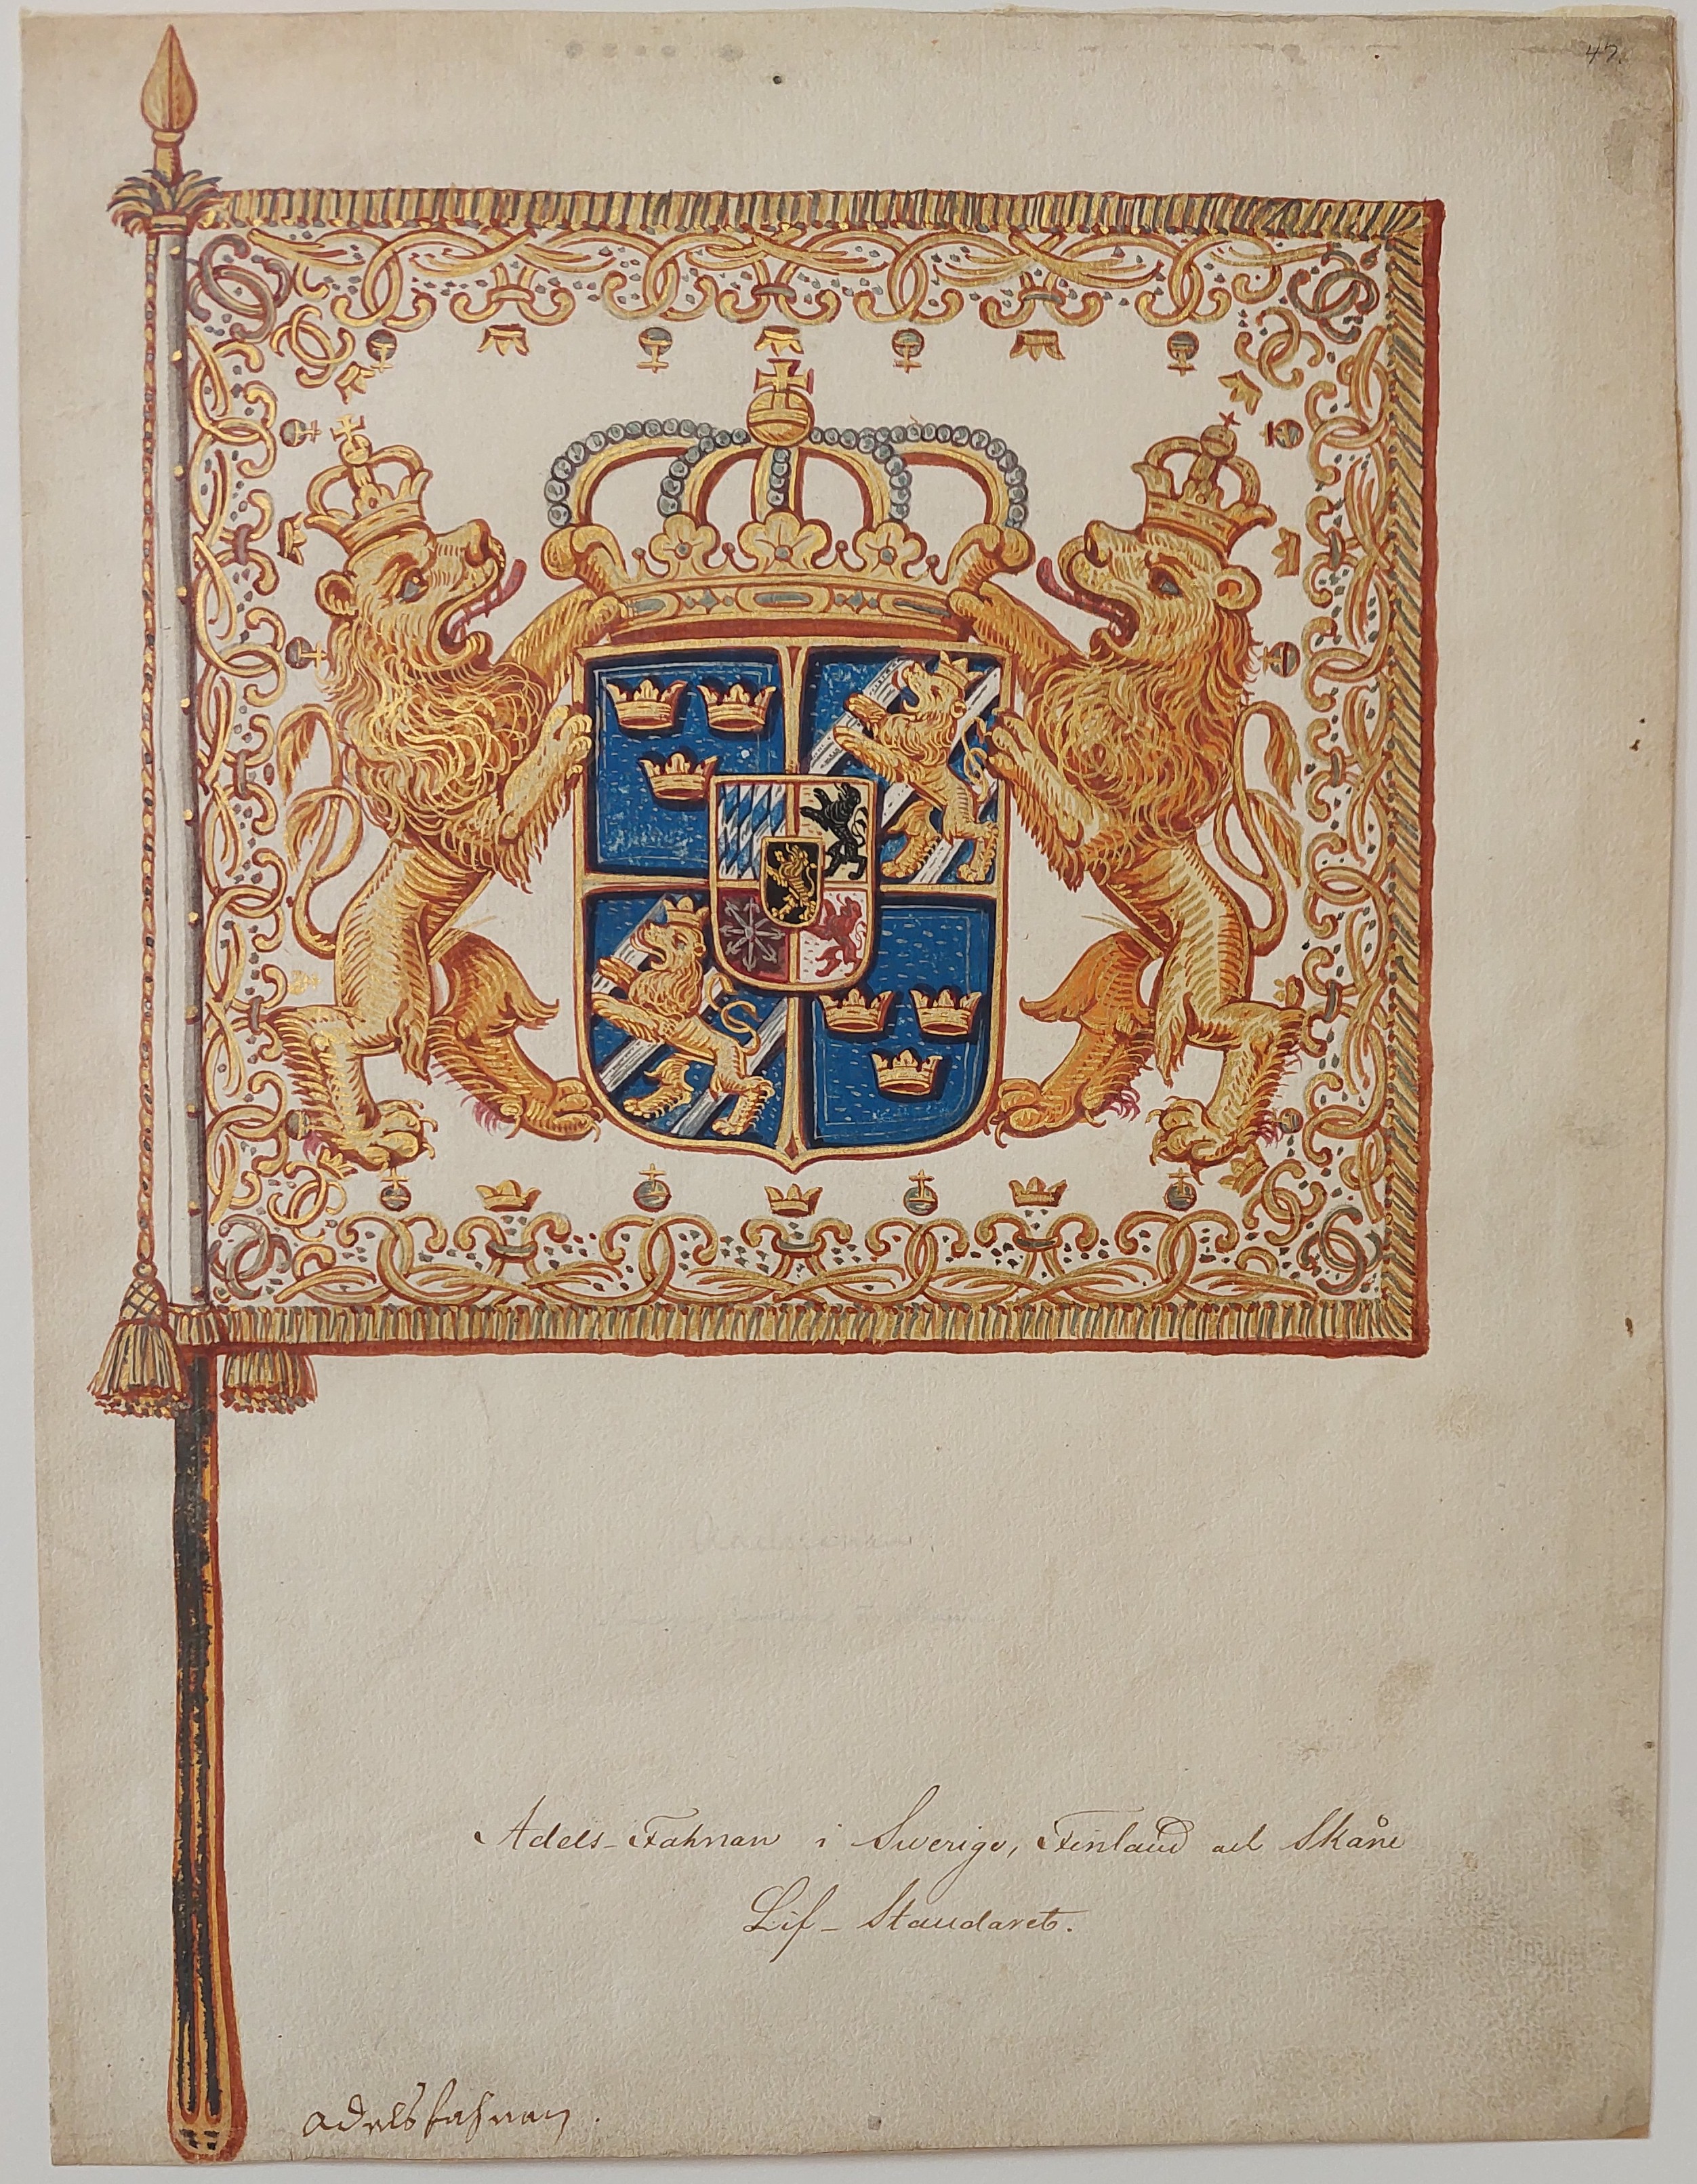 47.
Adels-Fahnan i Swerige, Finland och Skåne
Lif-Standaret.
adelsfahnan.